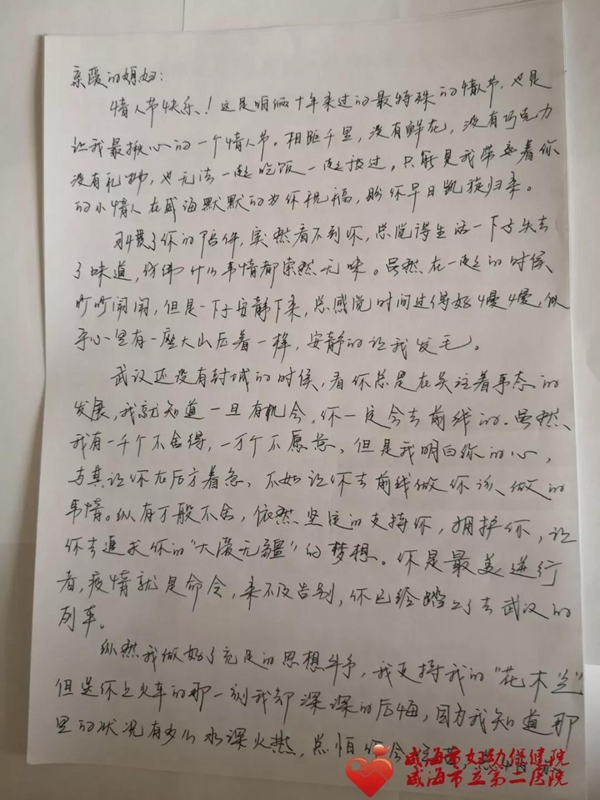 亲爱的媳妇：
情人节快乐！这是咱俩十年来过的最特殊的情人节，也是
让我最揪心的一个情人节。相距千里，没有鲜花，没有巧克力
没有礼物，也无法一起吃饭一起度过。只能是我带着你
的小情人在威海默默的为你祝福，盼你早日凯旋归来。
习惯了你的陪伴，突然看不到你，总觉得生活一下子失去
了味道，仿佛什么事情都索然无味。虽然在一起的时候
吵吵闹闹，但是一下子安静下来，总感觉时间过得好慢好慢，似
乎心里有一座大山压着一样，安静的让我发毛。
武汉还没有封城的时候，看你总是在关注着事态的
发展，我就知道一旦有机会，你一定会去前线的。虽然
我有一千个不舍得，一万个不愿意，但是我明白你的心，
与其让你在后方着急，不如让你去前线做你该做的
事情。纵有万般不舍，依然坚定的支持你，拥护你，让
你去追求你的“大爱无疆”的梦想。你是最美逆行
者，疫情就是命令，来不及告别，你已经踏上了去武汉的
列车。
纵然我做好了充足的思想斗争，我支持我的“花木兰”
但送你上火车的那一刻我却深深的后悔，因为我知道那
里的状况有多么水深火热，总怕你会
威海市妇幼保健院
威海市立第二医院